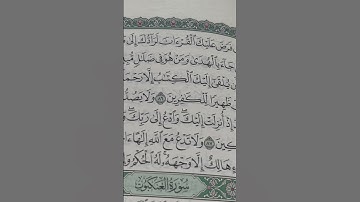 فَرَضَ عَلَيْكَ ٱلْقُرْءَانَ لَرَآدُّكَ إِلَىٰ
جَآءَ بِٱلْهُدَىٰ وَمَنْ هُوَ فِى ضَلَٰلٍ
يُلْقَىٰٓ إِلَيْكَ ٱلْكِتَٰبُ إِلَّا
ظَهِيرًا لِّلْكَٰفِرِينَ ٨٦ وَلَا
إِذْ أُنزِلَتْ إِلَيْكَ ۖ وَٱدْعُ إِلَىٰ رَبِّكَ ۖ
٨٧ وَلَا تَدْعُ مَعَ ٱللَّهِ إِلَٰهًا
هَالِكٌ إِلَّا وَجْهَهُۥ ۚ لَهُ ٱلْحُكْمُ
سُورَةُ العَنكَبُوتِ